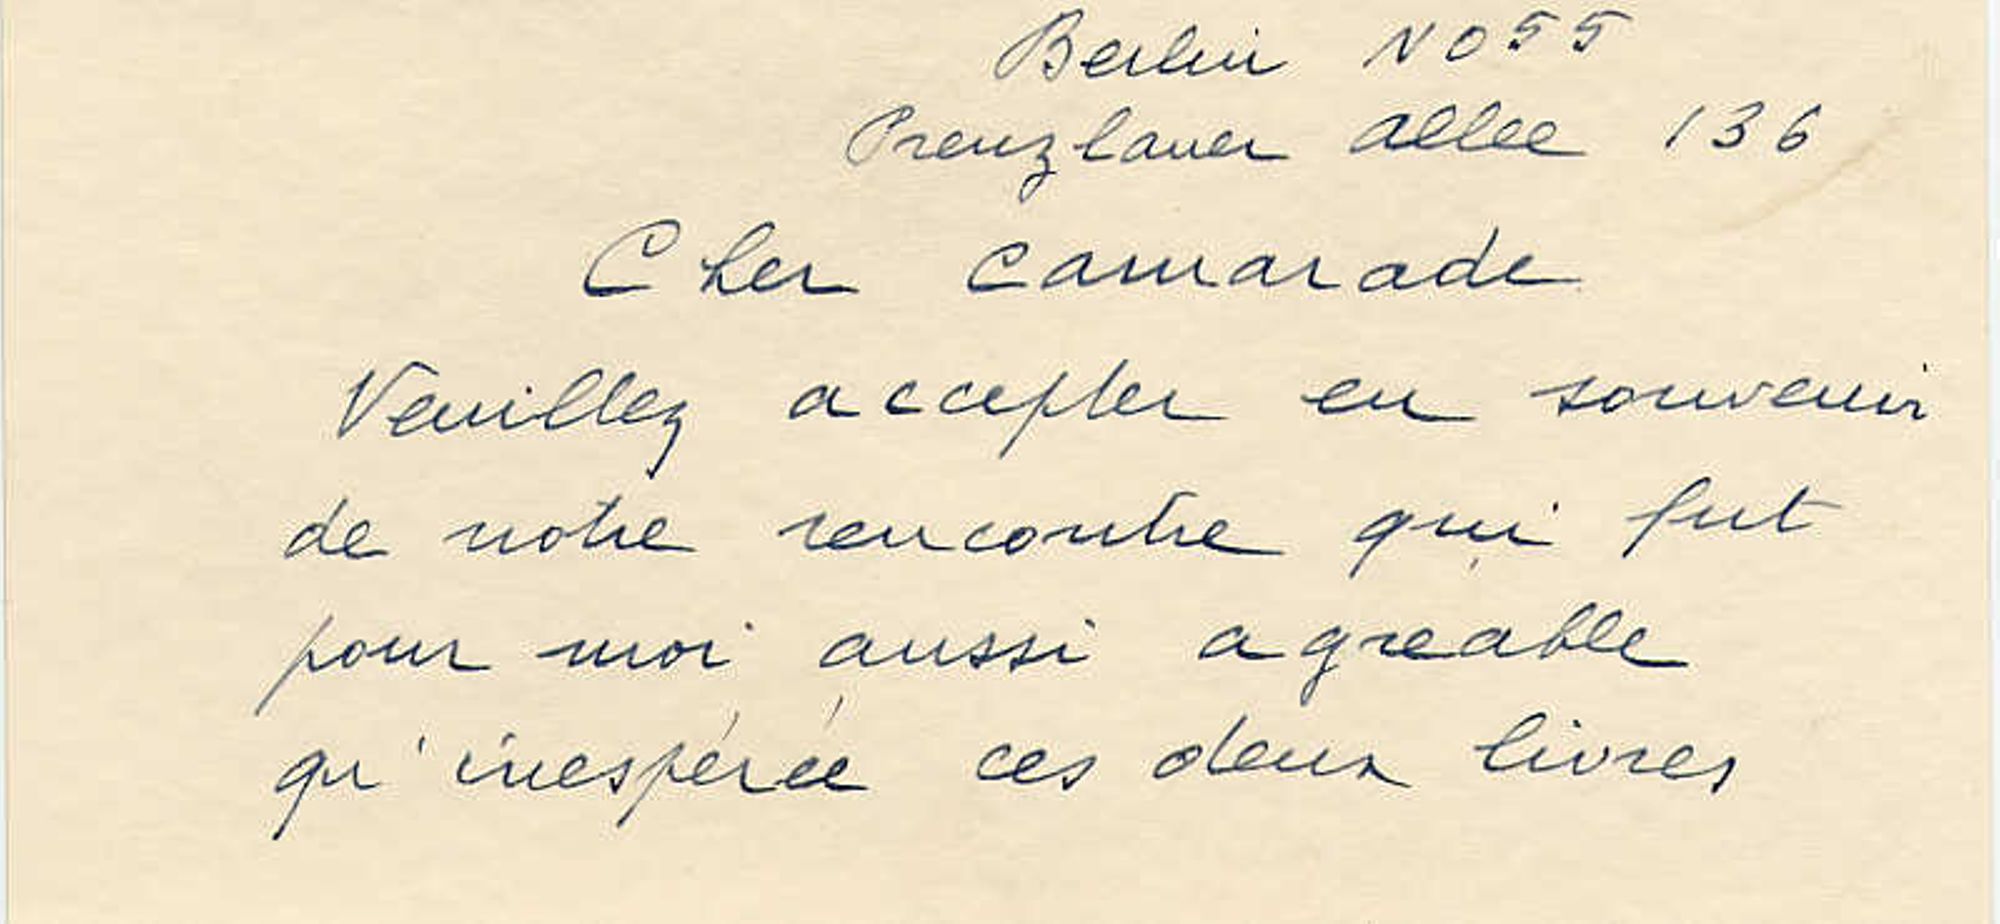 Berlin NO55
Prenzlauer allee 136
Cher camarade
Veuillez accepter en souvenir
de notre rencontre qui fut
pour moi aussi agreable
qu'inespérée ces deux livres